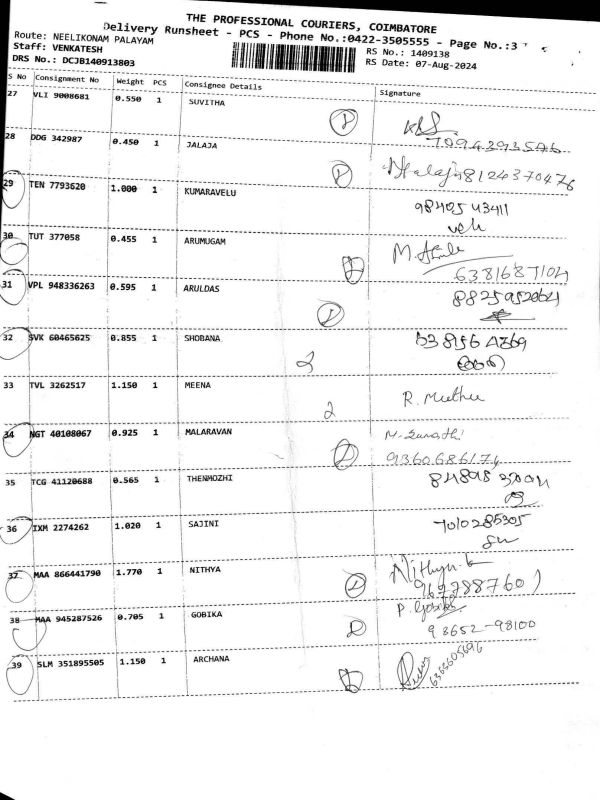 THE PROFESSIONAL COURIERS, COIMBATORE
Delivery Runsheet - PCS - Phone No.:0422-3505555 - Page No.:3
Route: NEELIKONAM PALAYAM
RS No.: 1409138
Staff: VENKATESH
RS Date: 07-Aug-2024
DRS No.: DCJB140913803
S No Consignment No Weight PCS Consignee Details Signature
27 VLI 9008681 0.550 1 SUVITHA
7094393546
28 DDG 342987 0.450 1 JALAJA
8124370476
29 TEN 7793620 1.000 1 KUMARAVELU
98405 43411
30 TUT 377058 0.455 1 ARUMUGAM
6381687104
31 VPL 948336263 0.595 1 ARULDAS
8825952064
32 SVK 60465625 0.855 1 SHOBANA
2
33 TVL 3262517 1.150 1 MEENA
2 R. Muthu
34 NGT 40108067 0.925 1 MALARAVAN
35 TCG 41120688 0.565 1 THENMOZHI
36 IXM 2274262 1.020 1 SAJINI
7010285305
37 MAA 866441790 1.770 1 NITHYA
38 MAA 945287526 0.705 1 GOBIKA
P. Gobika
93652-98100
39 SLM 351895505 1.150 1 ARCHANA